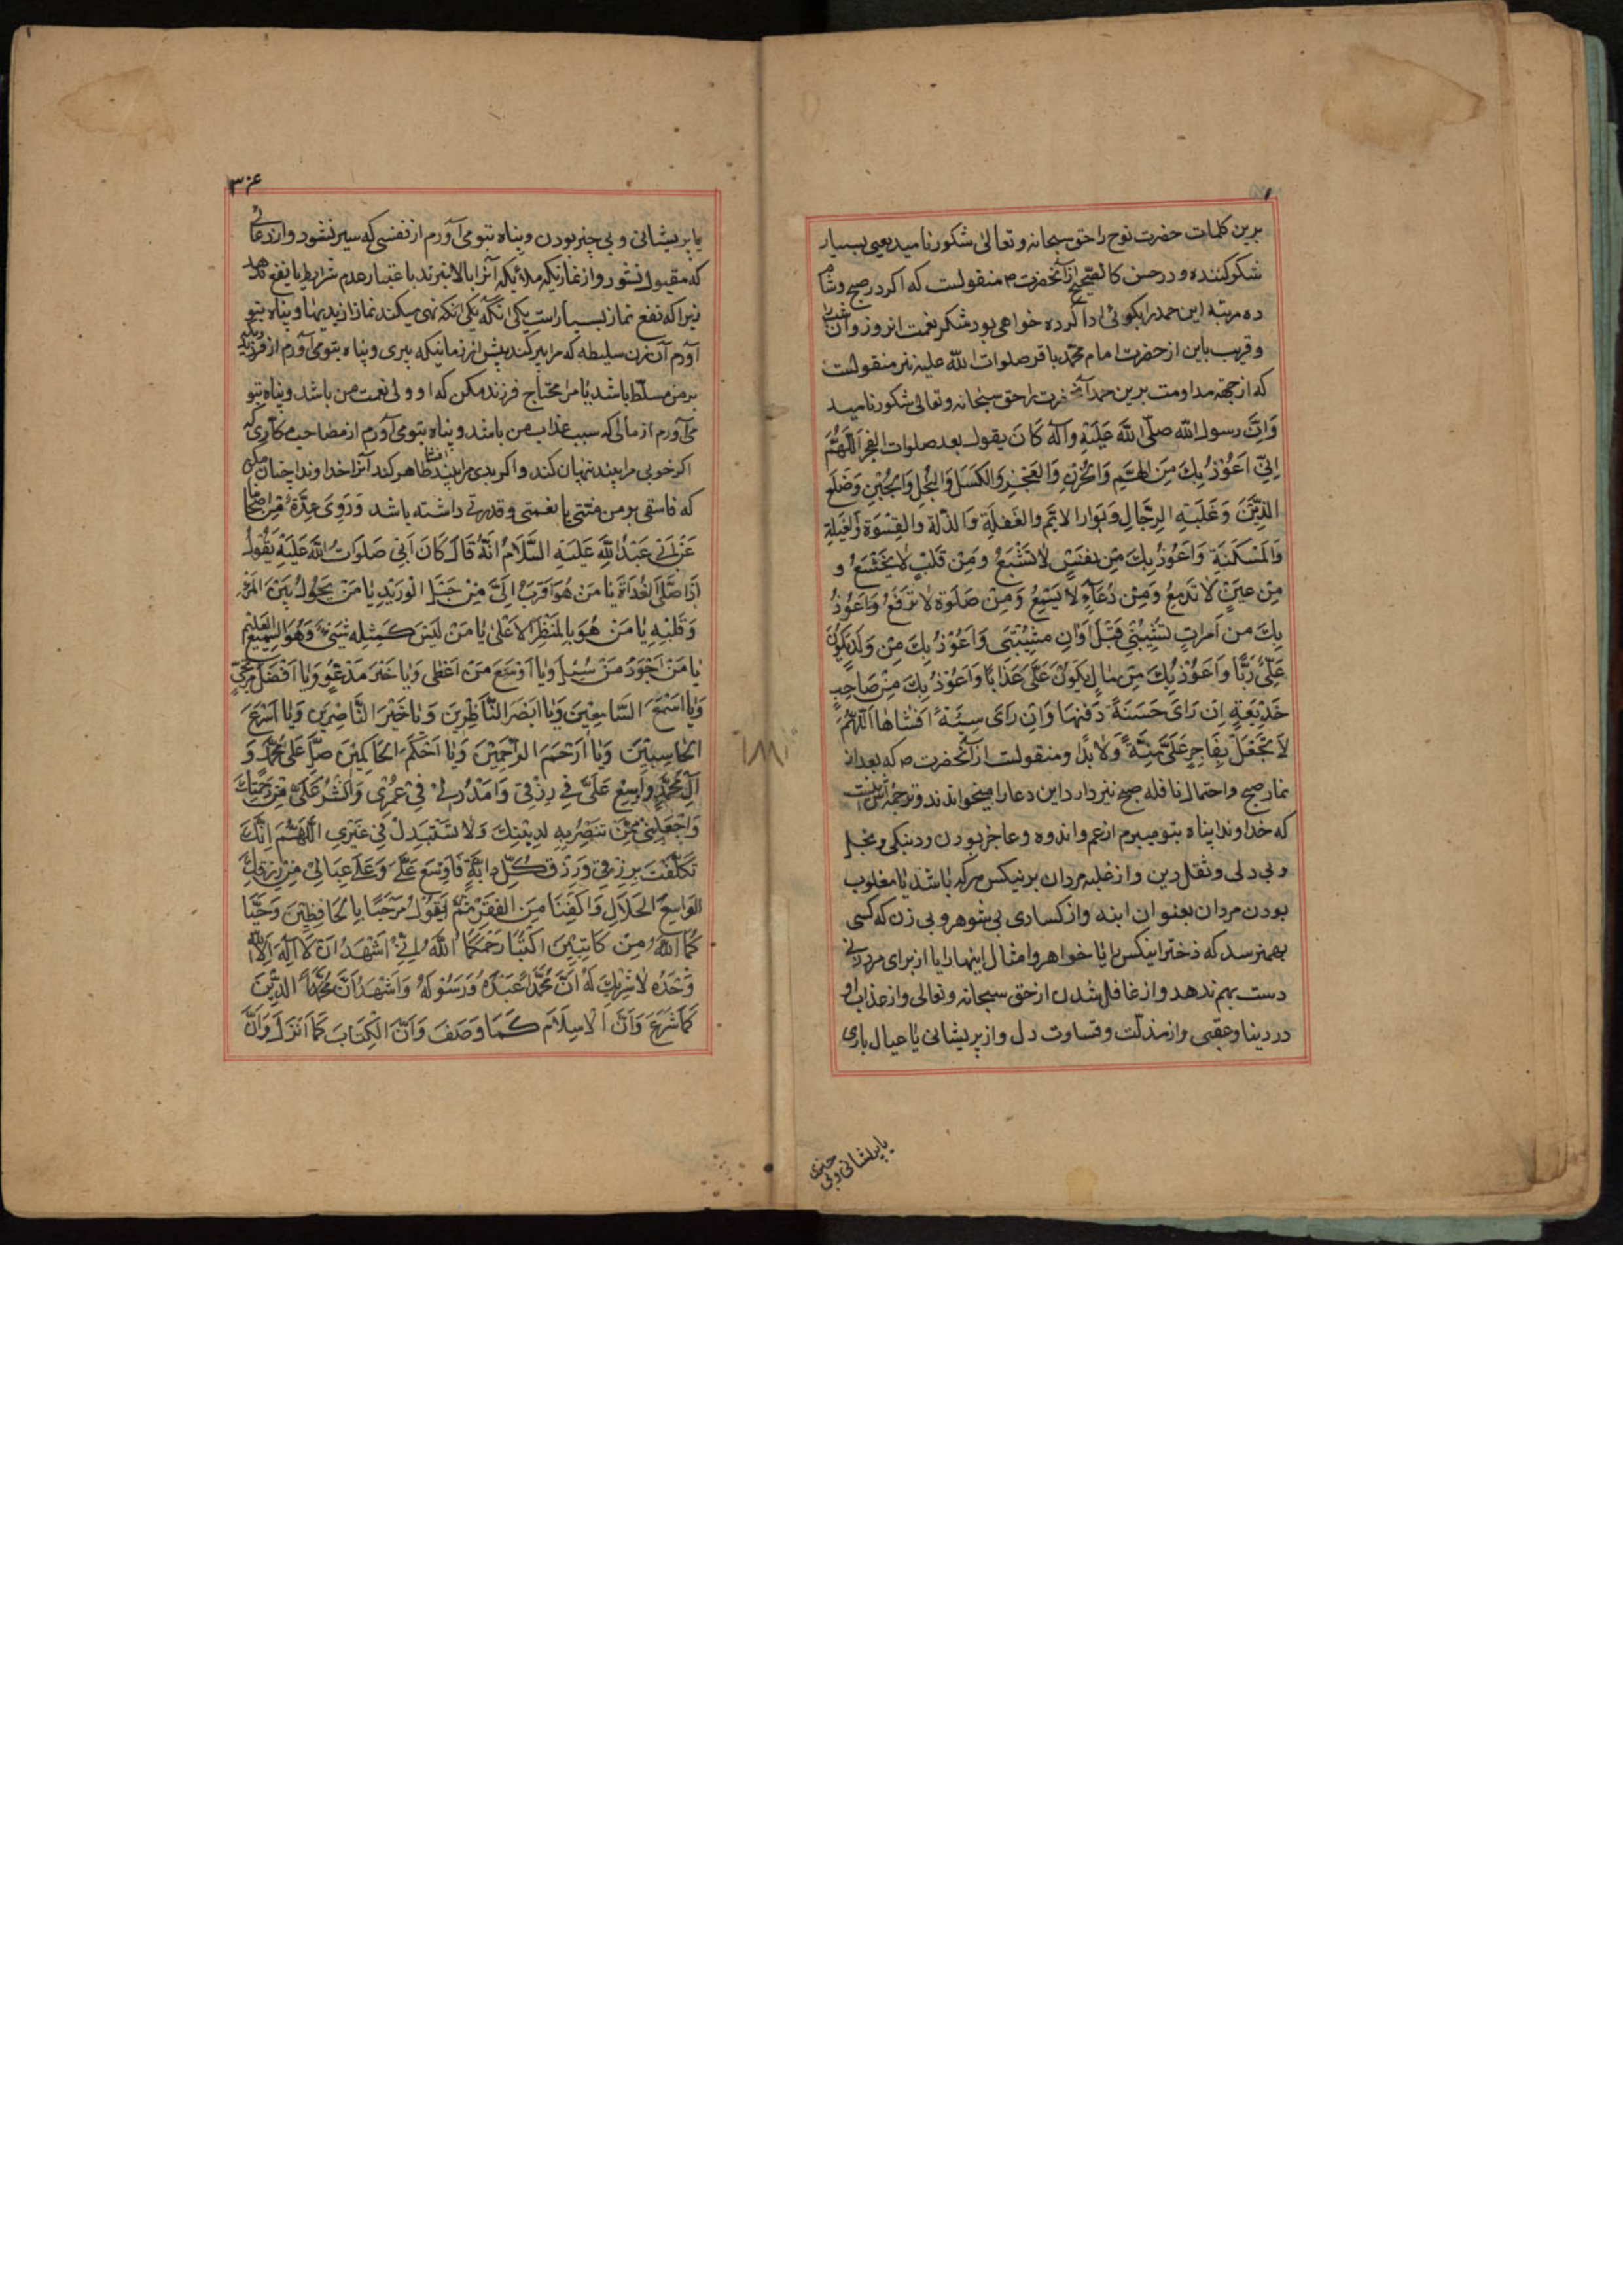 برين كلمات حضرت نوح را حق سبحانه و تعالى شكور ناميد يعنى بسيار
شكر كننده و در حسن كالصحيح از آنحضرت ص منقولست كه اكر در صبح و شام
ده مرتبه اين حمد را بكوئى ادا كرده خواهى بود شكر نعمت انروز و ان شب را
و قريب باين از حضرت امام محمد باقر صلوات الله عليه نيز منقولست
كه از جهة مداومت برين حمد آنحضرت را حق سبحانه و تعالى شكور ناميد
وَاِنَّ رسول الله صلّى اللهَ عَلَيْهِ وآلهِ كَانَ يقول بعد صلوات الفجر اَللّهُمَّ
اِنّى اَعُوْذُ بِكَ مِنَ الهَمِّ وَالحُزْنِ وَالعَجْزِ وَالكَسَلِ وَالبُخْلِ وَالجُبْنِ وَضَلَعِ
الدَّيْنِ وَغَلَبَةِ الرِّجَالِ وَبَوارِ الايّمِ والغَفلَةِ وَالذِّلةِ والقِسْوَةِ وَالعَيلَةِ
وَالمَسْكَنَةِ وَاَعُوذُ بِكَ مِن نفسٍ لاتَشْبَعُ ومِنْ قَلْبٍ لايَخْشَعُ و
مِنْ عينٍ لاتَدمَعُ وَمِنْ دُعَآءٍ لايُسْمَعُ وَمِنْ صَلوةٍ لاتُرْفَعُ وَاَعُوْذُ
بِكَ من اَمراتٍ تُشَيِّبُنِي قَبْلَ اَوَانِ مشِيْبَتِى وَاَعُوْذُ بِكَ مِنْ وَلَدٍ يَكُوْنُ
عَلَيَّ رَبًّا وَاَعُوْذُ بِكَ مِن مَالٍ يَكُونُ عَلَيَّ عَذَابًا وَاَعُوْذُ بِكَ مِنْ صَاحِبِ
خَدِيْعَةٍ اِن رَاى حَسَنَةً دَفَنَهَا وَاِن رَاى سِيِّئَةً اَفشَاهَا اَللّهُمَّ
لاَ تَجْعَلْ لِفَاجِرٍ عَلَيَّ مِنَّةً وَلاٰ يَدًا و منقولست از آنحضرت ص كه بعد از
نماز صبح و احتمال نافله صبح نيز دارد اين دعا را ميخواندند و ترجمه اش اينست
كه خداوندا پناه بتو ميبرم از غم و اندوه و عاجز بودن و دنبكى و بخل
و بى دلى و ثقل دين و از غلبه مردان بر نيكس هر كه باشد يا مغلوب
بودن مردان بعنوان ابنه و از كسادى بى شوهر و بى زن كه كسى
بهم نرسد كه دختر اينكس را يا خواهر و امثال اينها را يا از براى مرد زنى
دست بهم ندهد و از غافل شدن از حق سبحانه و تعالى و از عذاب او
در دنيا و عقبى و از مذلت و قساوت دل و از پريشانى با عيال بارى
يا پريشانى و بى چيزى
٣٠۶
يا پريشانى و بى چيز بودن و پناه بتو مى آورم از نفسى كه سير نشود و از دعائى
كه مقبول نشود و از نمازيكه ملائيكه آنرا بالا نبرند باعتبار عدم شرايط يا نفع ندهد
زيرا كه نفع نماز بسيار است يكى آنكه نهى ميكند نماز از بديها و پناه بتو
آورم از زن سليطه كه مرا پير كند پيش از زمانيكه پيرى و پناه بتو مى آورم از فرزنديكه
بر من مسلط باشد يا مرا محتاج فرزند مكن كه او ولى نعمت من باشد و پناه بتو
مى آورم از مالى كه سبب عذاب من باشد و پناه بتو مى آورم از مصاحب مكارى كه
اكر خوبى مرا بيند پنهان كند و اكر بدى مرا بيند ظاهر كند آنرا خداوندا چنان مكن
كه فاسقى بر من منتى يا نعمتى و قدرتى داشته باشد وَرَوى عِدَّة مِن اصحابنا
عَنْ اَبي عَبْدِ اللهِ عَلَيْهِ السَّلَامُ اَنَّهُ قَالَ كَانَ اَبى صَلَوَاتُ اللهِ عَلَيْهِ يَقُوْلُ
اِذَا صَلّى الغُدَاةَ يَا مَنْ هُوَ اَقرَبُ اِلَيَّ مِنْ حَبْلِ الوَرِيْدِ يَا مَنْ يَحُوْلُ بَيْنَ المَرْءِ
وَقَلْبِهِ يَا مَنْ هُوَ بِالمَنْظَرِ الاَعْلىٰ يَا مَنْ لَيْسَ كَمِثْلِهِ شَيْءٌ وَهُوَ السَّمِيْعُ العَلِيْمُ
يَا مَنْ اَجْوَدُ مَنْ سُئِلَ وَيَا اَوْسَعَ مَنْ اَعْطى وَيَا خَيْرَ مَدْعُوٍّ وَيَا اَفْضَلَ مُرْتَجىً
وَيَا اَسْمَعَ السَّامِعِيْنَ وَيَا اَبْصَرَ النَّاظِرِيْنَ وَيَا خَيْرَ النَّاصِرِيْنَ وَيَا اَسْرَعَ
الحَاسِبِيْنَ وَيَا اَرْحَمَ الرَّاحِمِيْنَ وَيَا اَحْكَمَ الحَاكِمِيْنَ صَلِّ عَلى مُحَمَّدٍ وَ
آلِ مُحَمَّدٍ وَاَوسِعْ عَلَيَّ فِي رِزْقِي وَامْدُدْ لِيْ فِي عُمْرِي وَانْشُرْ عَلَيَّ مِن رَحْمَتِكَ
وَاجْعَلْنِيْ مِمَّنْ تَنتَصِرُ بِهِ لِدِيْنِكَ وَلَا تَسْتَبْدِلْ بِي غَيْرِي اللّهُمَّ اِنَّكَ
تَكَفَّلْتَ بِرِزقِي وَرِزْقِ كُلِّ دابَّةٍ فَاَوْسِعْ عَلَيَّ وَعَلى عِيَالِيْ مِنْ رِزقِكَ
الوَاسِعِ الحَلَالِ وَاكْفِنَا مِنَ الفَقْرِ ثمَّ يَقُوْلُ مَرْحَبًا بِالحَافِظَيْنِ وَحَيَّا
كُمَا اللهُ مِنْ كَاتِبَيْنِ اكْتُبَا رَحِمَكُمَا اللهُ اِنِّيْ اَشْهَدُ اَنْ لَا اِلَهَ اِلَّا اللهُ
وَحْدَهُ لاشَرِيْكَ لَهُ اَنَّ مُحَمَّدًا عَبْدُهُ وَرَسُوْلُهُ وَاَشْهَدُ اَنَّ الدِّيْنَ
كَمَا شَرَعَ وَاَنَّ الاسِلَامَ كَمَا وَصَفَ وَاَنَّ الكِتَابَ كَمَا اَنْزَلَ وَاَنَّ